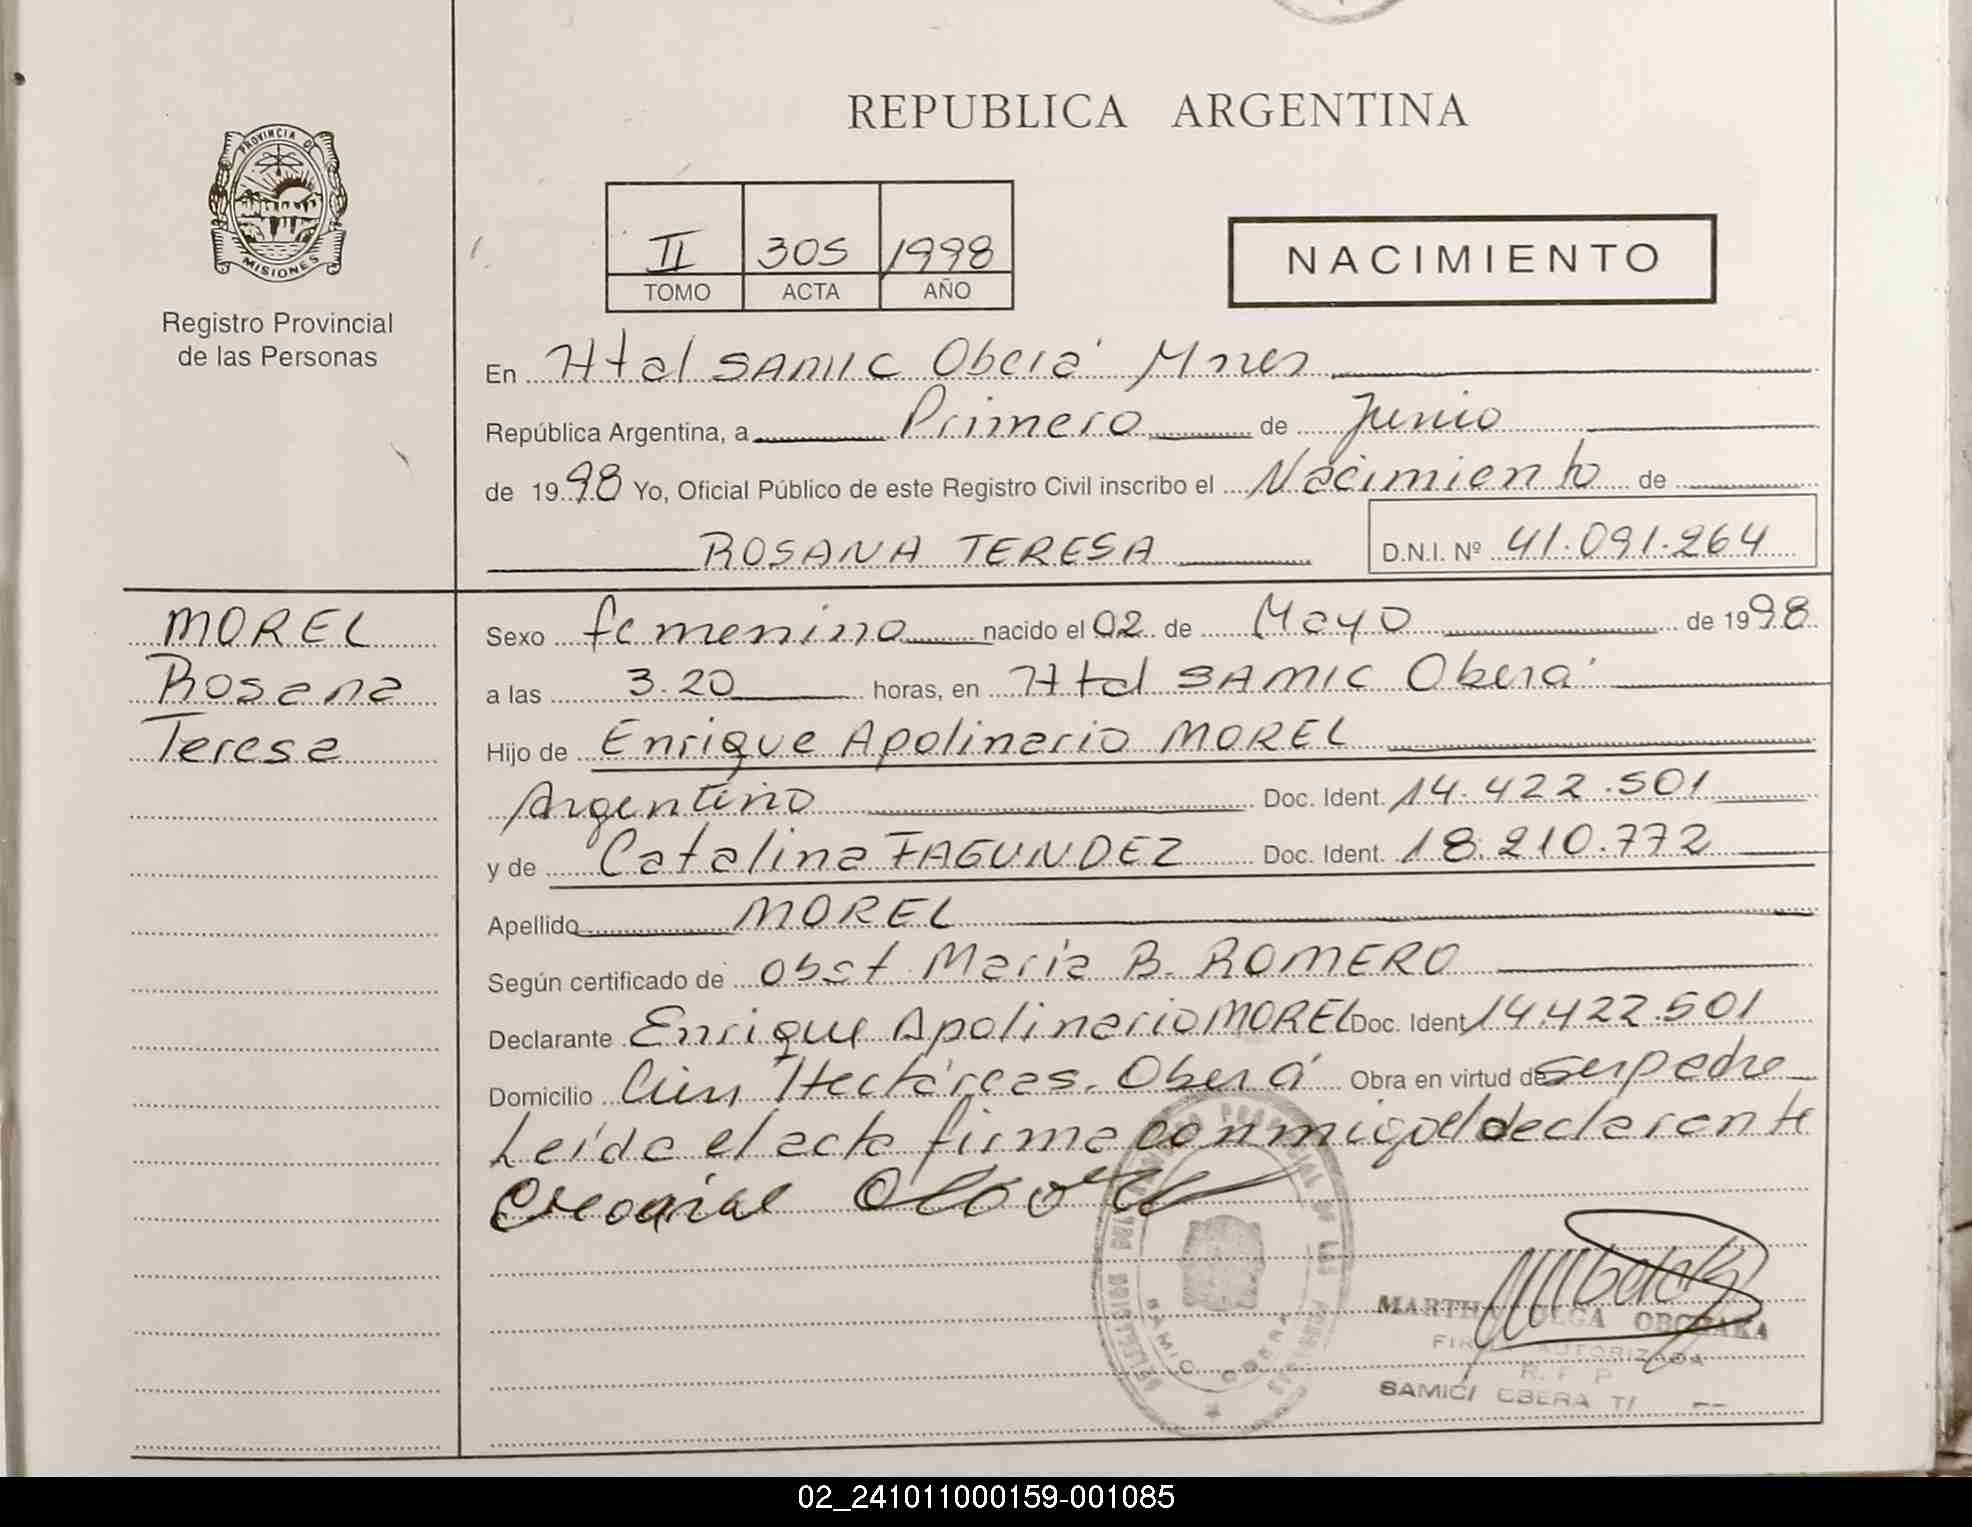 REPUBLICA ARGENTINA
PROVINCIA DE
MISIONES
Registro Provincial
de las Personas
II 305 1998
TOMO ACTA AÑO
NACIMIENTO
En Htal SAMIC Oberá Mnes
República Argentina, a Primero de Junio
de 1998 Yo, Oficial Público de este Registro Civil inscribo el Nacimiento de
ROSANA TERESA D.N.I. Nº 41.091.264
MOREL
Rosana
Teresa
Sexo femenino nacido el 02 de Mayo de 1998
a las 3.20 horas, en Htal SAMIC Oberá
Hijo de Enrique Apolinario MOREL
Argentino Doc. Ident. 14.422.501
y de Catalina FAGUNDEZ Doc. Ident. 18.210.772
Apellido MOREL
Según certificado de Obst Maria B. ROMERO
Declarante Enrique Apolinario MOREL Doc. Ident 14.422.501
Domicilio Cien Hectáreas. Oberá Obra en virtud de ser padre
Leída el acta firma conmigo el declarante
MARTHA OLGA
FIRMA AUTORIZADA
R. P. P
SAMIC OBERA
02_241011000159-001085